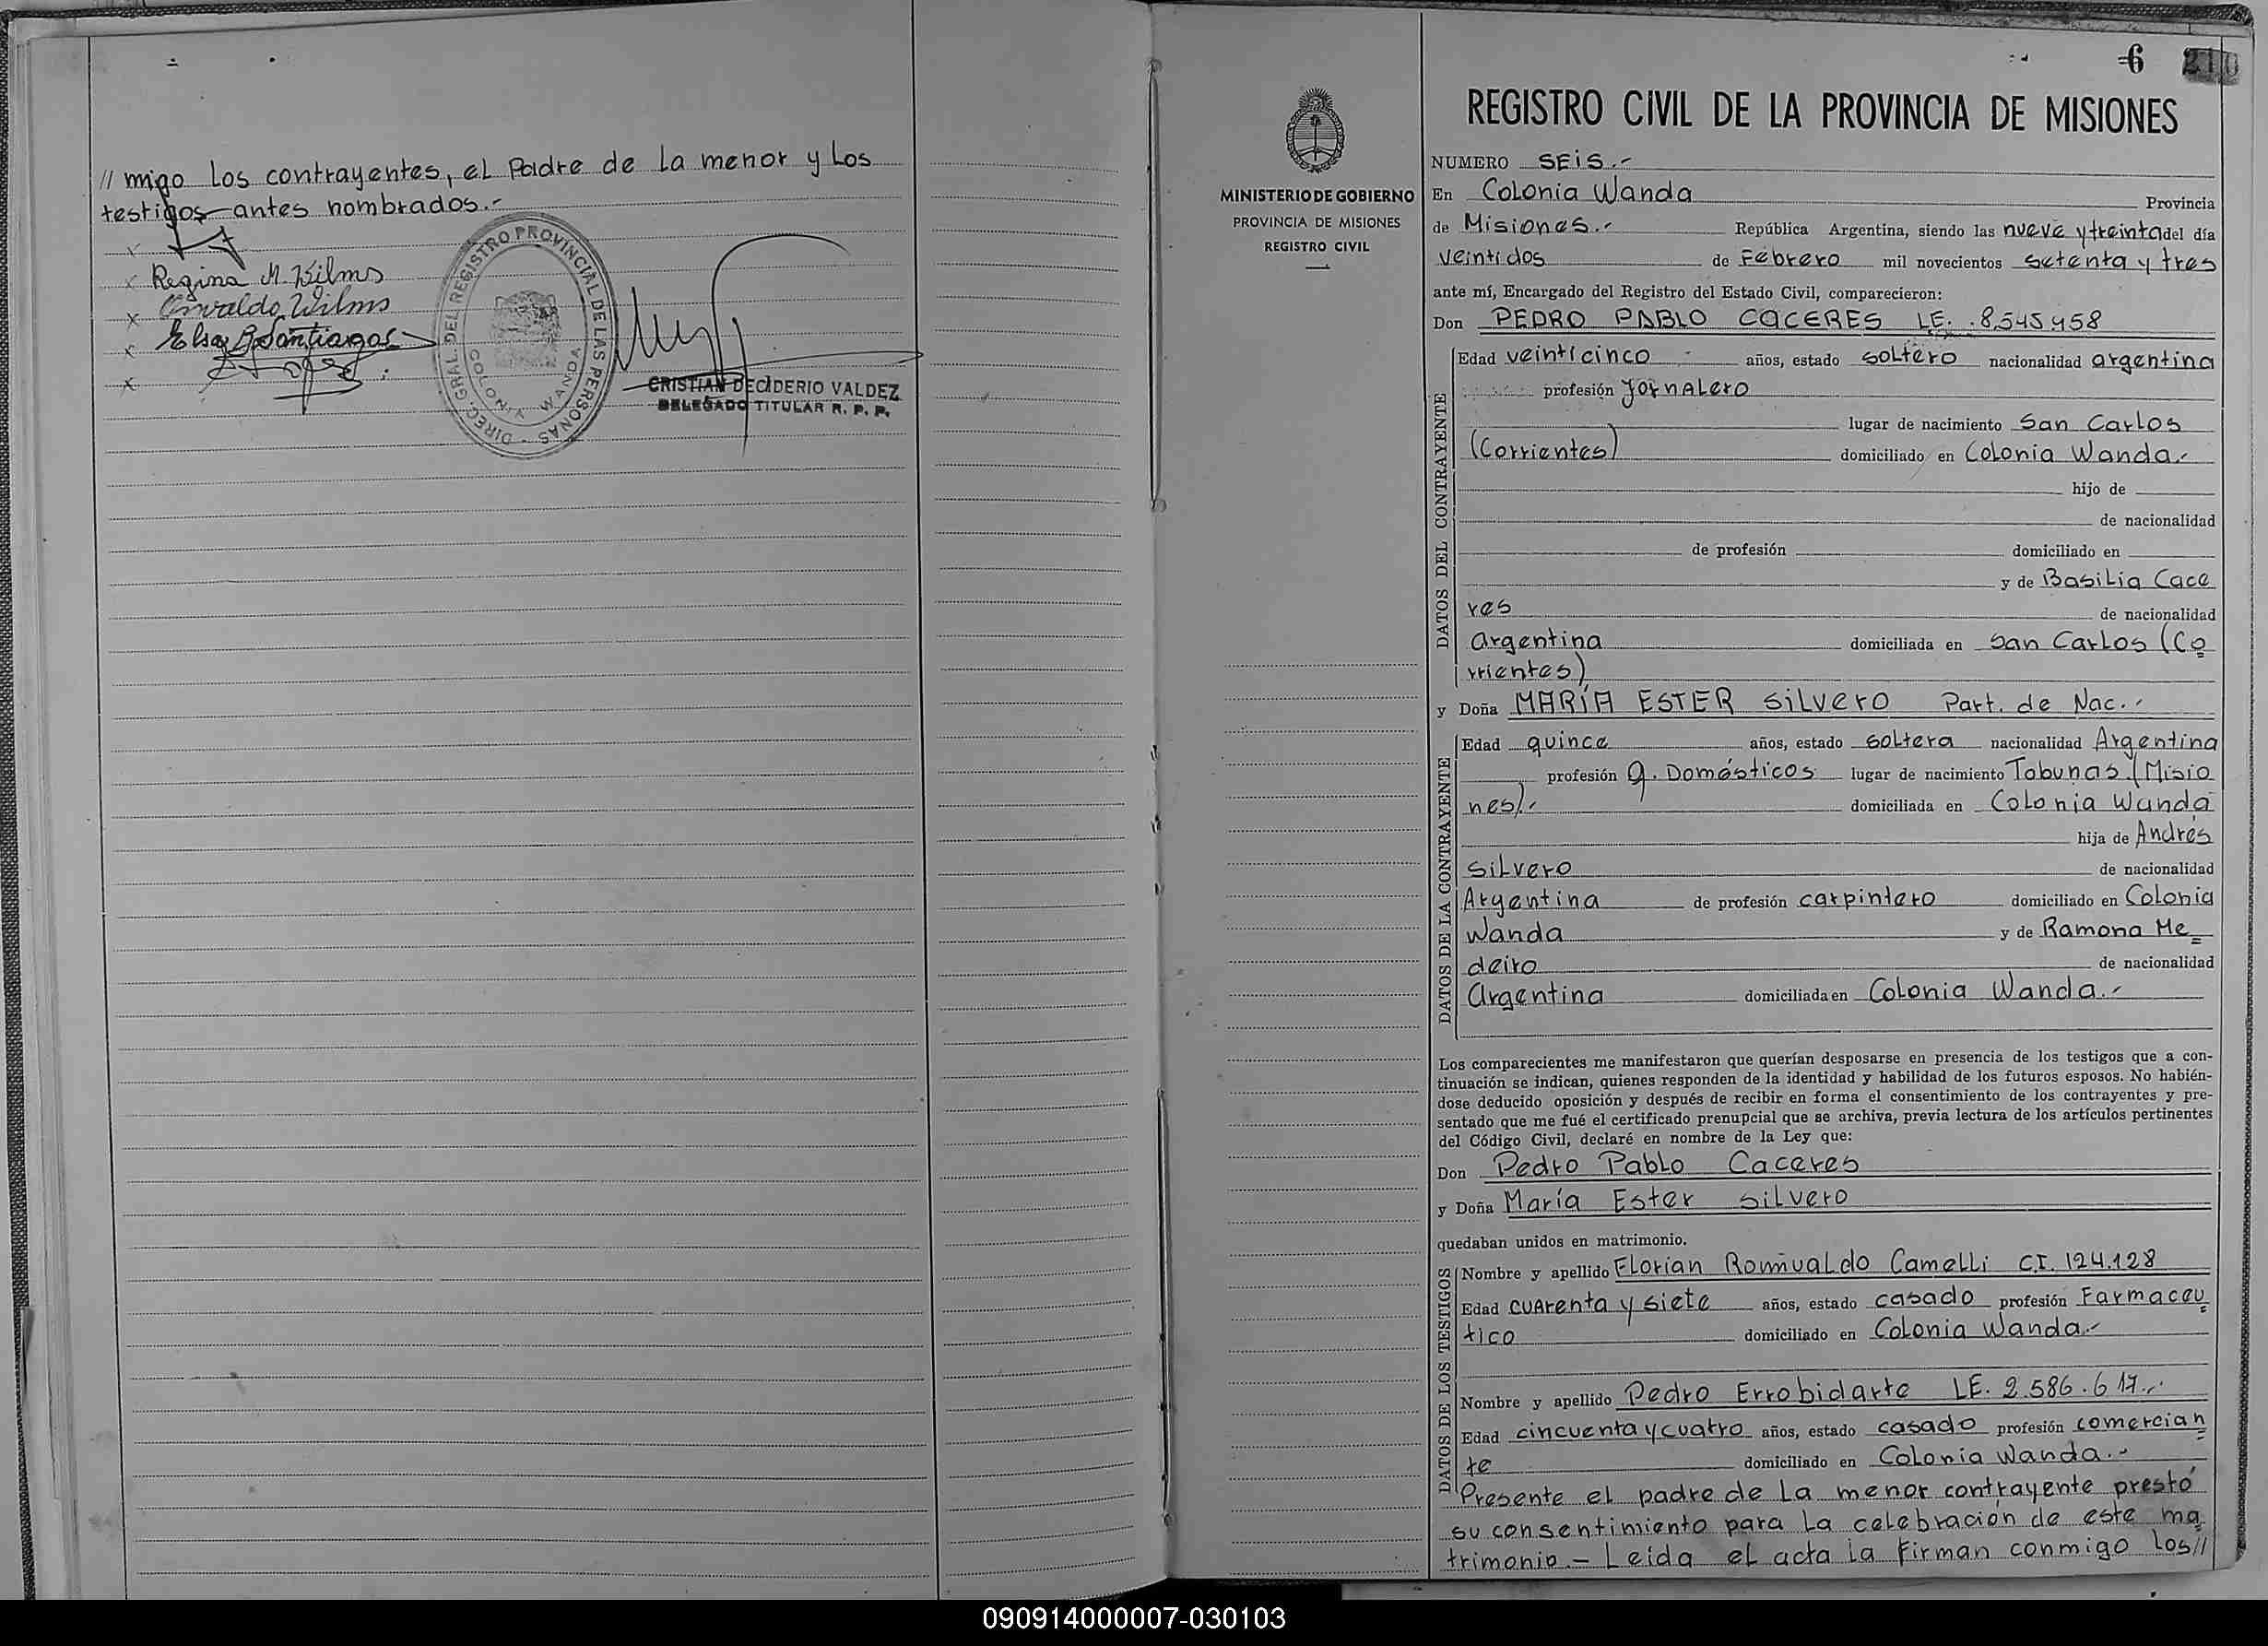 // migo los contrayentes, el Padre de la menor y los
testigos antes nombrados.-
x
x Regina M. Wilms
x Osvaldo Wilms
x Elsa B. Santiago
x
DIREC. GRAL. DEL REGISTRO PROVINCIAL DE LAS PERSONAS
COLONIA WANDA
CRISTIAN DECIDERIO VALDEZ
DELEGADO TITULAR R. P. P.
=6 210
REGISTRO CIVIL DE LA PROVINCIA DE MISIONES
MINISTERIO DE GOBIERNO
PROVINCIA DE MISIONES
REGISTRO CIVIL
NUMERO SEIS.-
En Colonia Wanda Provincia
de Misiones.- República Argentina, siendo las nueve y treinta del día
veintidos de Febrero mil novecientos setenta y tres
ante mí, Encargado del Registro del Estado Civil, comparecieron:
Don PEDRO PABLO CACERES LE. 8.545.458
DATOS DEL CONTRAYENTE
Edad veinticinco años, estado soltero nacionalidad argentina
profesión jornalero
lugar de nacimiento San Carlos
(Corrientes) domiciliado en Colonia Wanda.-
hijo de
de nacionalidad
de profesión domiciliado en
y de Basilia Cace
res de nacionalidad
argentina domiciliada en San Carlos (Co
rrientes)
y Doña MARÍA ESTER SILVERO Part. de Nac.-
DATOS DE LA CONTRAYENTE
Edad quince años, estado soltera nacionalidad Argentina
profesión q. Domésticos lugar de nacimiento Tobunas (Misio
nes).- domiciliada en Colonia Wanda
hija de Andrés
Silvero de nacionalidad
Argentina de profesión carpintero domiciliado en Colonia
Wanda y de Ramona Me=
deiro de nacionalidad
argentina domiciliada en Colonia Wanda.-
Los comparecientes me manifestaron que querían desposarse en presencia de los testigos que a con-
tinuación se indican, quienes responden de la identidad y habilidad de los futuros esposos. No habién-
dose deducido oposición y después de recibir en forma el consentimiento de los contrayentes y pre-
sentado que me fué el certificado prenupcial que se archiva, previa lectura de los artículos pertinentes
del Código Civil, declaré en nombre de la Ley que:
Don Pedro Pablo Caceres
y Doña María Ester Silvero
quedaban unidos en matrimonio.
DATOS DE LOS TESTIGOS
Nombre y apellido Florian Romualdo Camelli C.I. 124.128
Edad cuarenta y siete años, estado casado profesión Farmaceu=
tico domiciliado en Colonia Wanda.-
Nombre y apellido Pedro Errobidarte LE. 2.586.617.-
Edad cincuenta y cuatro años, estado casado profesión comercian=
te domiciliado en Colonia Wanda.-
Presente el padre de la menor contrayente prestó
su consentimiento para la celebración de este ma
trimonio.- Leida el acta la firman conmigo los//
090914000007-030103